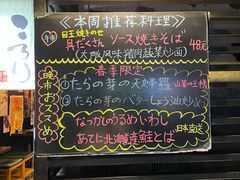 《本周推荐料理》
午市
目玉焼きのせ
具だくさん ソース焼きそば
(大阪风味猪肉蔬菜炒面) 48元
晚市おススメ
春季限定
①たらの芽の天婦羅 山菜の王様
②たらの芽のバターしょうゆ炒め
なつかしのうるめいわし
あてに北海道産鮭とば
日本直送